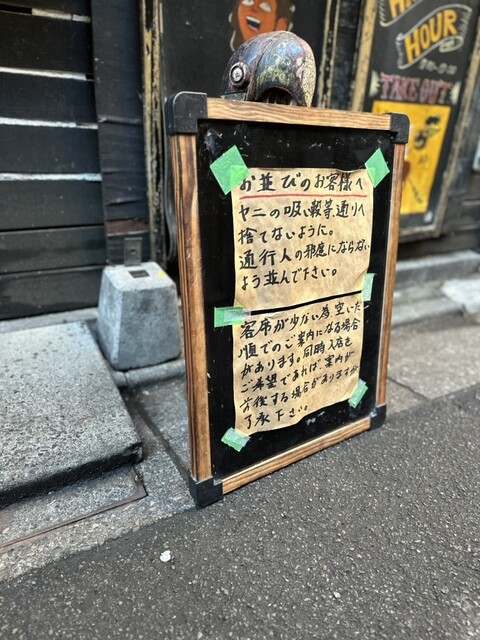 HAPPY
HOUR
TAKE OUT
お並びのお客様へ
ヤニの吸い殻等、通りへ
捨てないように。
通行人の邪魔にならない
よう並んで下さい。
客席が少ない為、空いた
順でのご案内になる場合
があります。同時入店を
ご希望であれば、案内が
前後する場合がありますが
了承下さい。